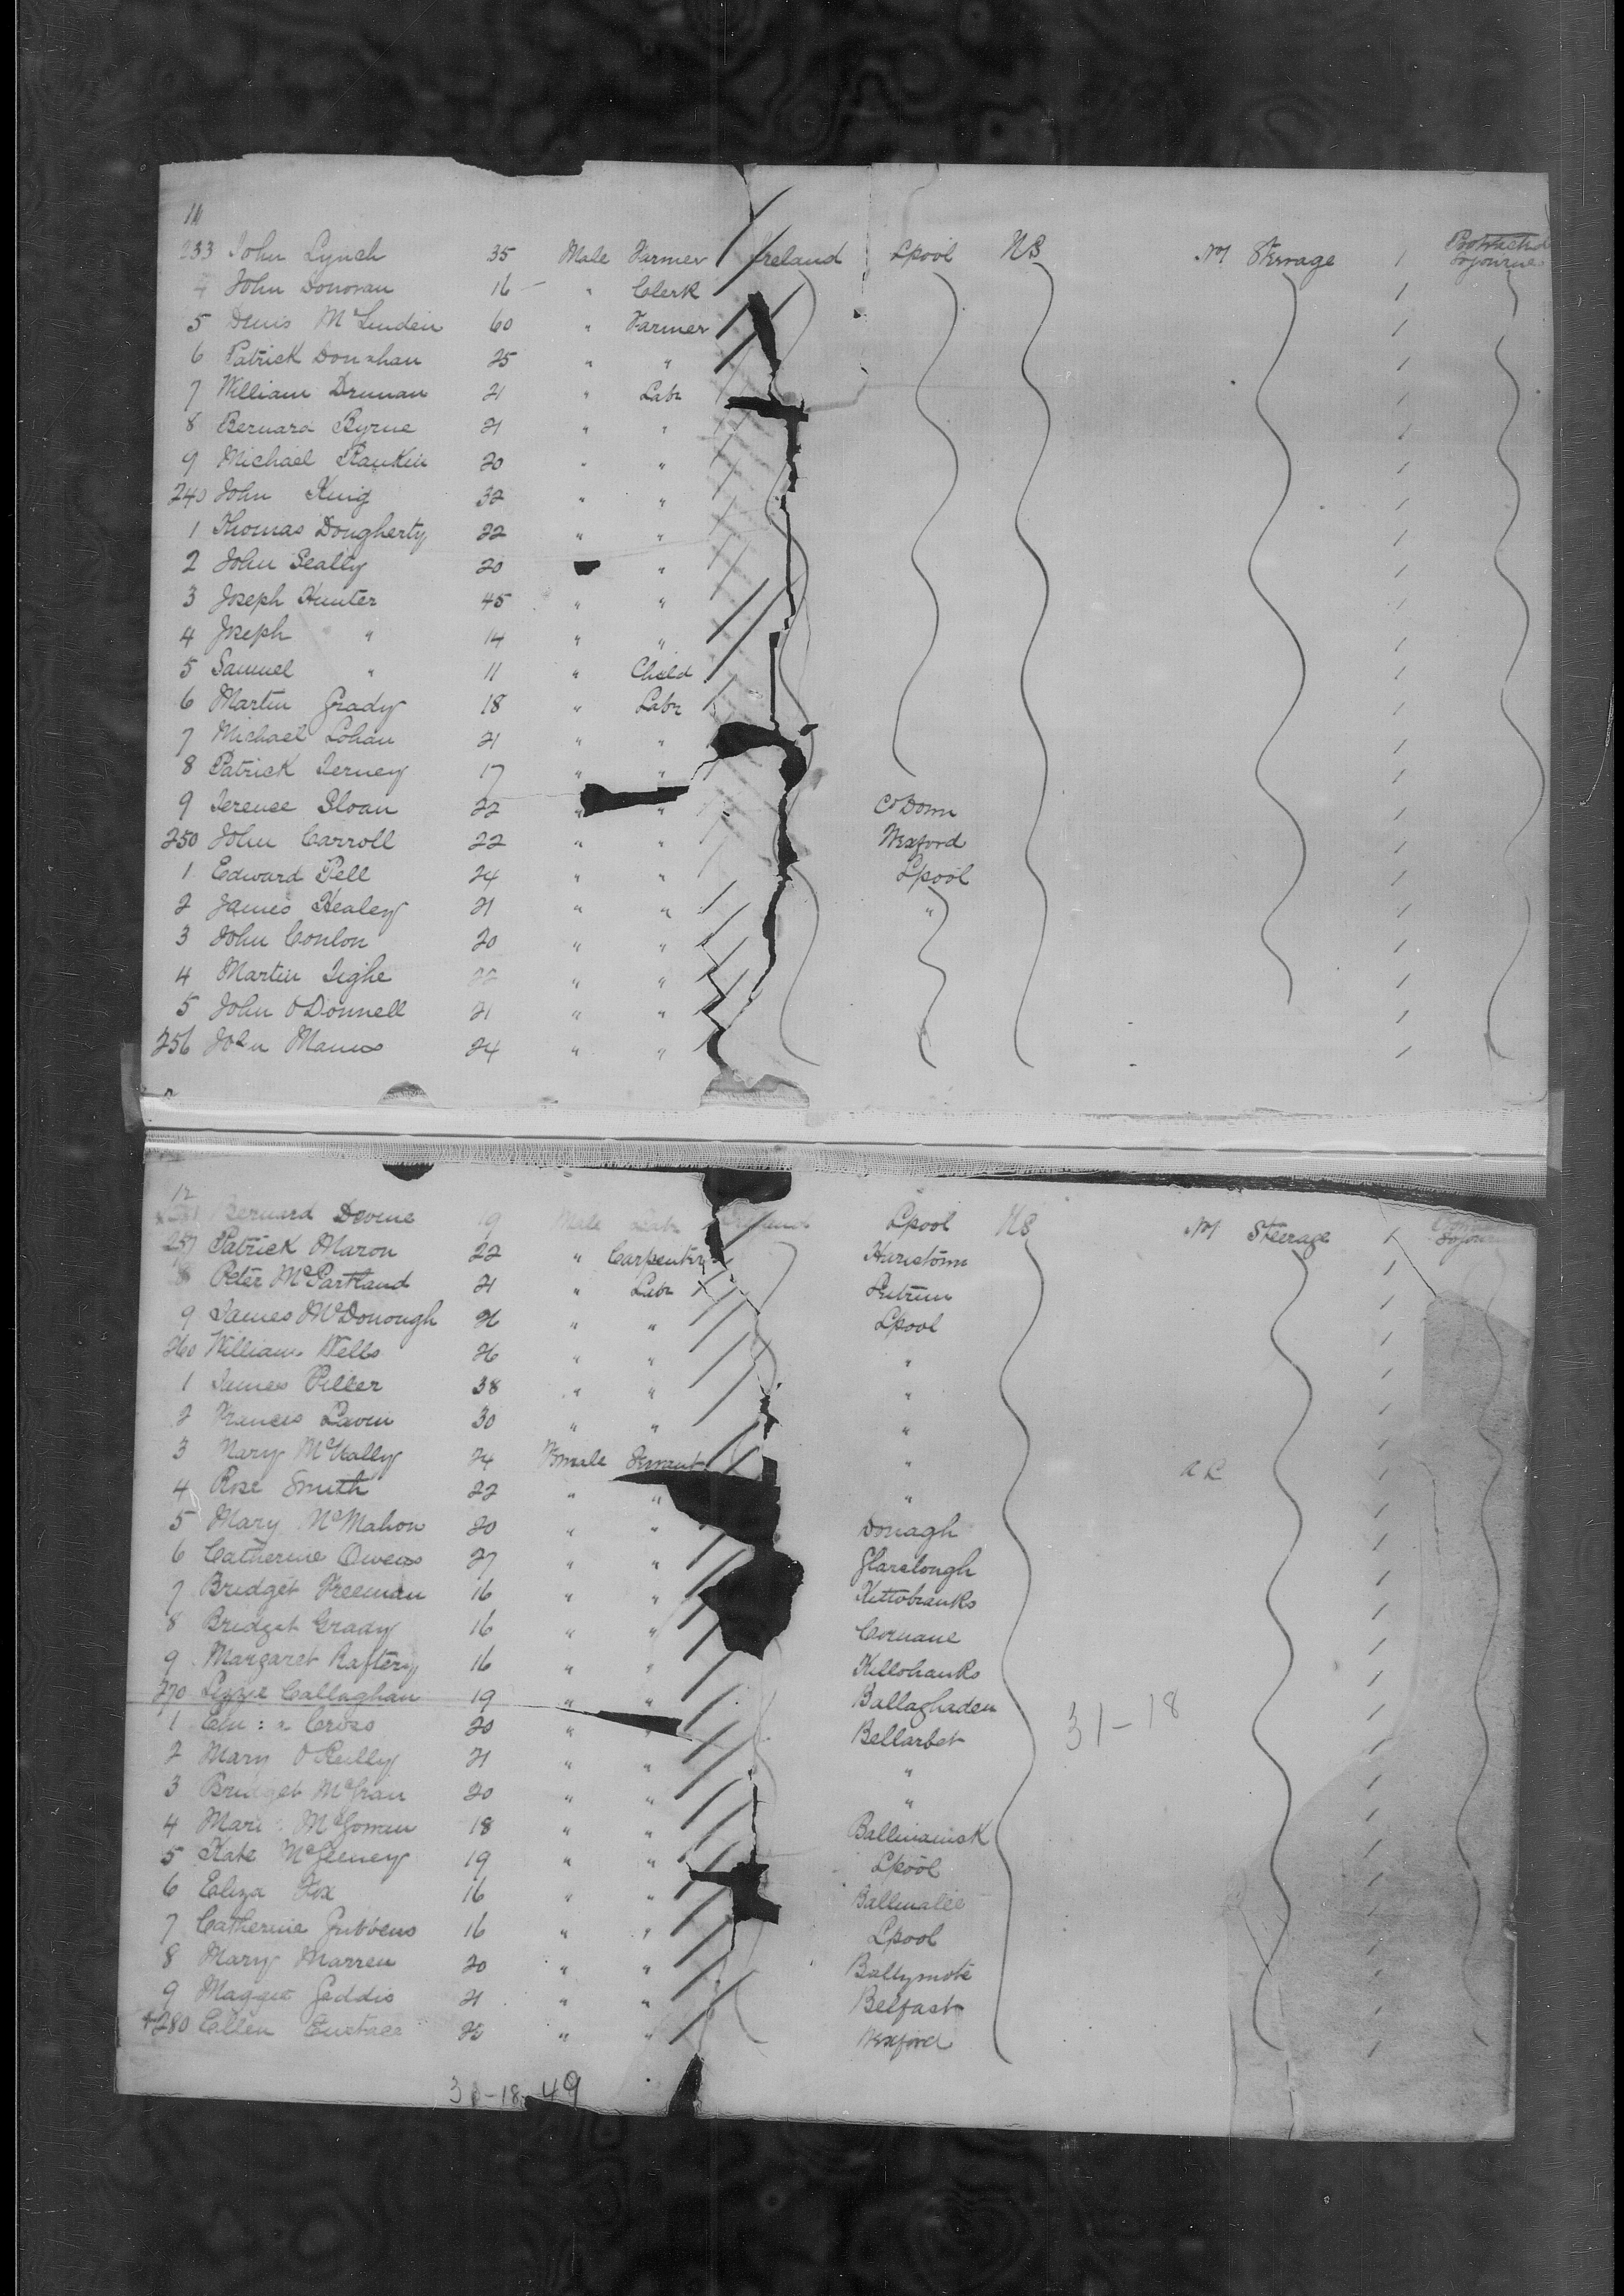 11
233 John Lynch 35 Male Farmer Ireland Lpool US M Steerage 1 Protracted Sojourne
4 John Donovan 16 — " Clerk 1
5 Denis McLinden 60 " Farmer 1
6 Patrick Donahan 25 " " 1
7 William Drunan 21 " Labr 1
8 Bernard Byrne 21 " " 1
9 Michael Rankin 20 " " 1
240 John King 32 " " 1
1 Thomas Dougherty 22 " " 1
2 John Scally 20 " 1
3 Joseph Hunter 45 " " 1
4 Joseph " 14 " " 1
5 Samuel " 11 " Child 1
6 Martin Grady 18 " Labr 1
7 Michael Lohan 21 " " 1
8 Patrick Terney 17 " " 1
9 Terence Sloan 22 " " Co Down 1
250 John Carroll 22 " " Wexford 1
1 Edward Pell 24 " " Lpool 1
2 James Healey 21 " " " 1
3 John Conlon 20 " " 1
4 Martin Tighe 22 " " 1
5 John O'Donnell 21 " " 1
256 John Manus 24 " " 1
12
Bernard Devine 19 Male Labr Ireland Lpool US M Steerage 1
257 Patrick Maron 22 " Carpenter 1
8 Peter McPartland 21 " Labr 1
9 James McDonough 26 " " Lpool 1
260 William Wells 26 " " " 1
1 James Piller 38 " " " 1
2 Francis Lavin 30 " " " 1
3 Mary McNally 24 Female Servant " 1
4 Rose Smith 22 " " " 1
5 Mary McMahon 20 " " Donagh 1
6 Catherine Owens 27 " " Glarslough 1
7 Bridget Freeman 16 " " 1
8 Bridget Grady 16 " " Cornane 1
9 Margaret Raftery 16 " " Killohanks 1
270 Lizzie Callaghan 19 " " Ballaghaden 31-18 1
1 Cross 20 " " Bellarbet 1
2 Mary O'Reilly 21 " " " 1
3 Bridget McGran 20 " " " 1
4 18 " " Ballinamok 1
5 Kate McGeeney 19 " " Lpool 1
6 Eliza Fox 16 " Ballinalee 1
7 Catherine Gibbons 16 " " Lpool 1
8 Mary Marren 20 " " Ballymote 1
9 Maggie Geddis 21 " " Belfast 1
280 Ellen Eustace 20 " " Wexford 1
49